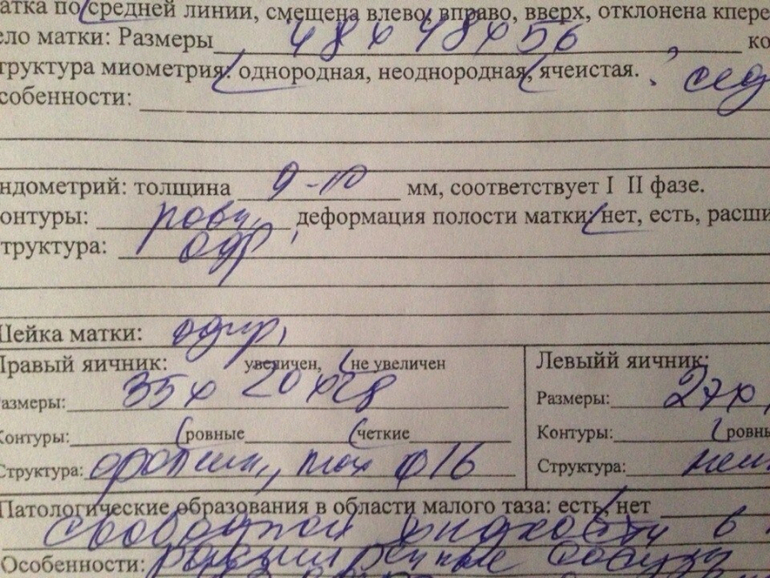 атка по средней линии, смещена влево, вправо, вверх, отклонена кпере
ело матки: Размеры 48х48х56 ко
труктура миометрия: однородная, неоднородная, ячеистая.
собенности:
ндометрий: толщина 9-10 мм, соответствует I II фазе.
онтуры: ровн, деформация полости матки: нет, есть, расши
труктура: одр
Шейка матки: однр,
Правый яичник: увеличен, не увеличен
азмеры: 35х20х28
Контуры: ровные четкие
Структура: фоллик, max ф16
Левыйй яичник:
Размеры: 27х
Контуры: ровны
Структура:
Патологические образования в области малого таза: есть, нет
свободной жидкости в
Особенности: сосуды